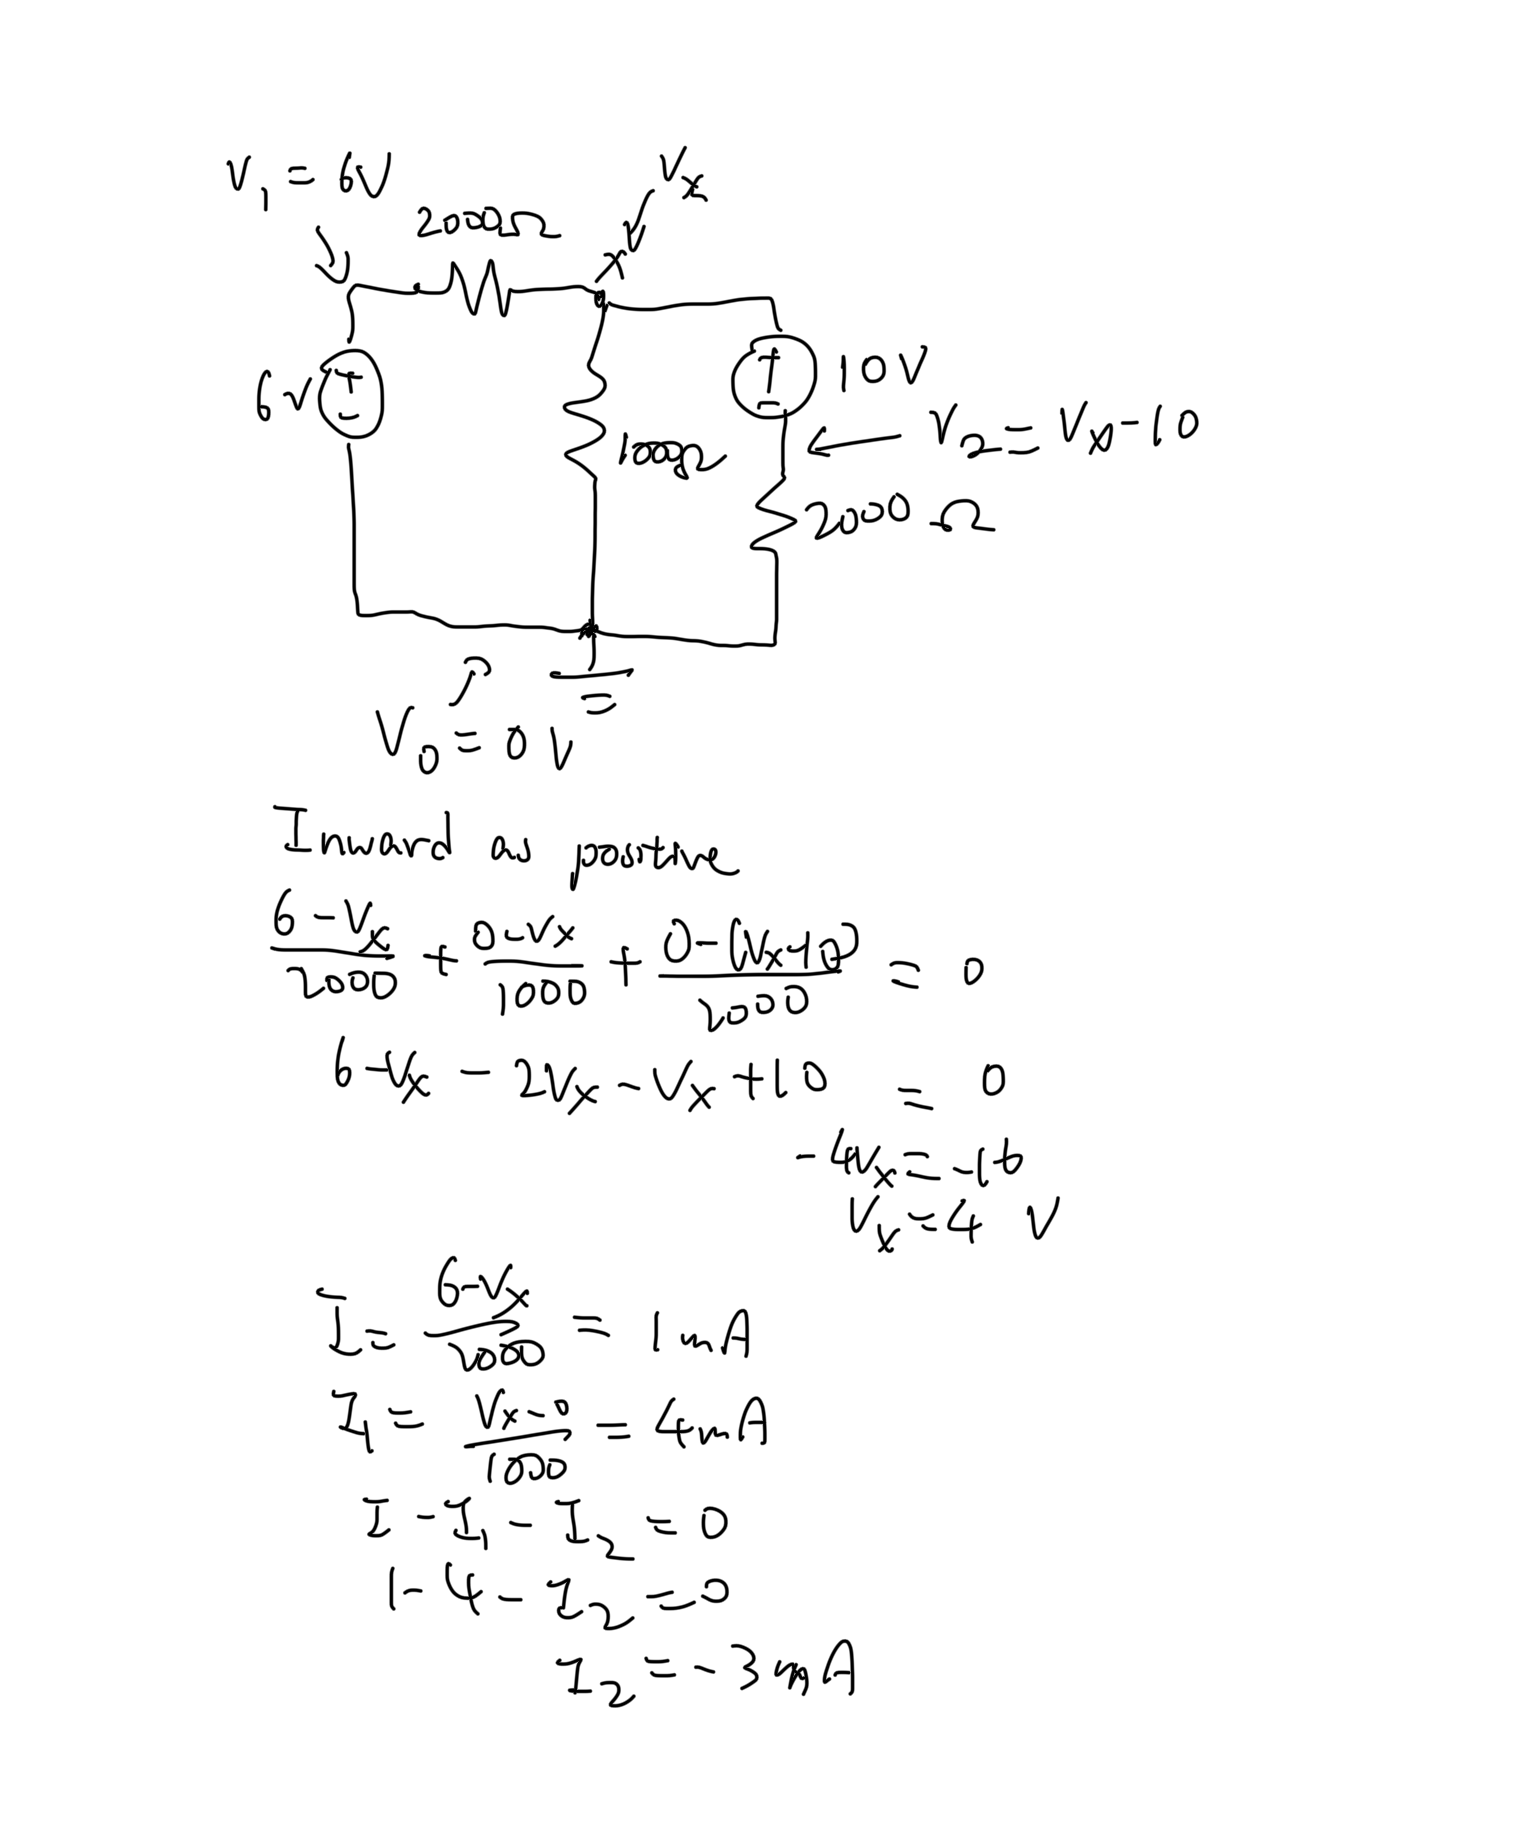 V₁ = 6V
Vx
2000Ω
x
6V
+
-
+
-
10V
V₂ = Vx-10
1000Ω
2000Ω
V₀ = 0V
Inward as positive
(6-Vx)/2000 + (0-Vx)/1000 + (0-(Vx-10))/2000 = 0
6-Vx - 2Vx - Vx + 10 = 0
-4Vx = -16
Vx = 4 V
I = (6-Vx)/2000 = 1mA
I₁ = (Vx-0)/1000 = 4mA
I - I₁ - I₂ = 0
1-4 - I₂ = 0
I₂ = -3mA